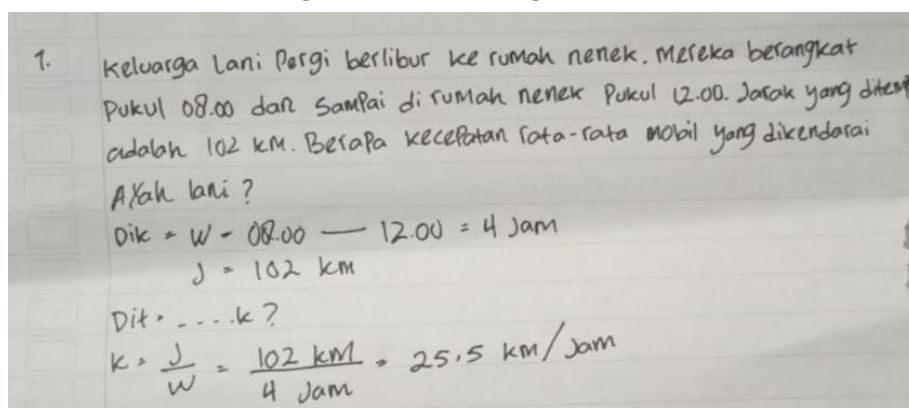 1. Keluarga Lani Pergi berlibur ke rumah nenek. Mereka berangkat
Pukul 08.00 dan Sampai di rumah nenek Pukul 12.00. Jarak yang
adalah 102 KM. Berapa kecepatan rata-rata mobil yang dikendarai
Ayah lani?
Dik = W = 08.00 — 12.00 = 4 Jam
J = 102 km
Dit = ....k?
K = J/W = 102 KM/4 Jam = 25.5 km/Jam